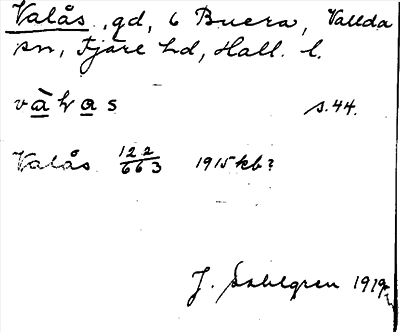 Valås, gd, 6 Buera, Vallda
sn, Fjäre hd, Hall. l.
vàlas s. 44.
Valås 122/663 1915 kb?
J. Sahlgren 1919